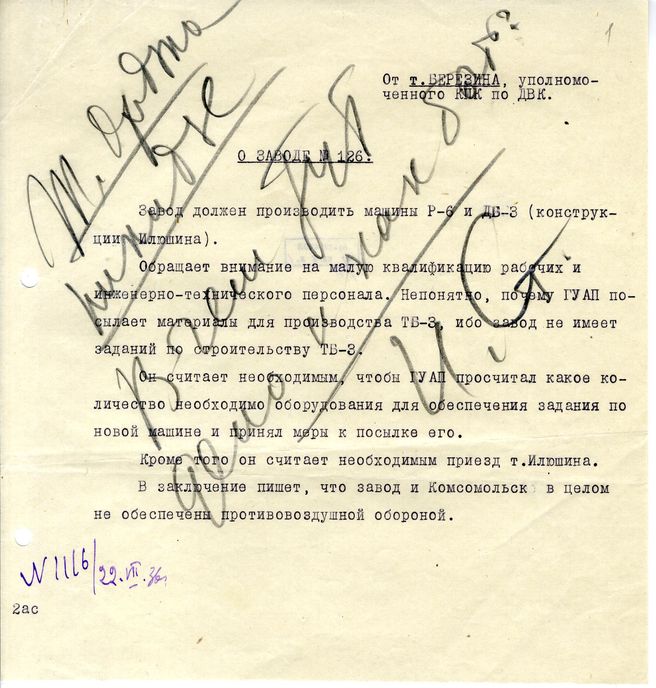 1
От т.БЕРЕЗИНА, уполномо-
ченного КПК по ДВК.
О ЗАВОДЕ № 126.
Завод должен производить машины Р-6 и ДБ-3 (конструк-
ции Илюшина).
Обращает внимание на малую квалификацию рабочих и
инженерно-технического персонала. Непонятно, почему ГУАП по-
сылает материалы для производства ТБ-3, ибо завод не имеет
заданий по строительству ТБ-3.
Он считает необходимым, чтобы ГУАП просчитал какое ко-
личество необходимо оборудования для обеспечения задания по
новой машине и принял меры к посылке его.
Кроме того он считает необходимым приезд т.Илюшина.
В заключение пишет, что завод и Комсомольск в целом
не обеспечены противовоздушной обороной.
Т. Орджо
никидзе
В чем тут
дело и как быть?
И. Ст.
N 1116/22.VII.36г
2ас